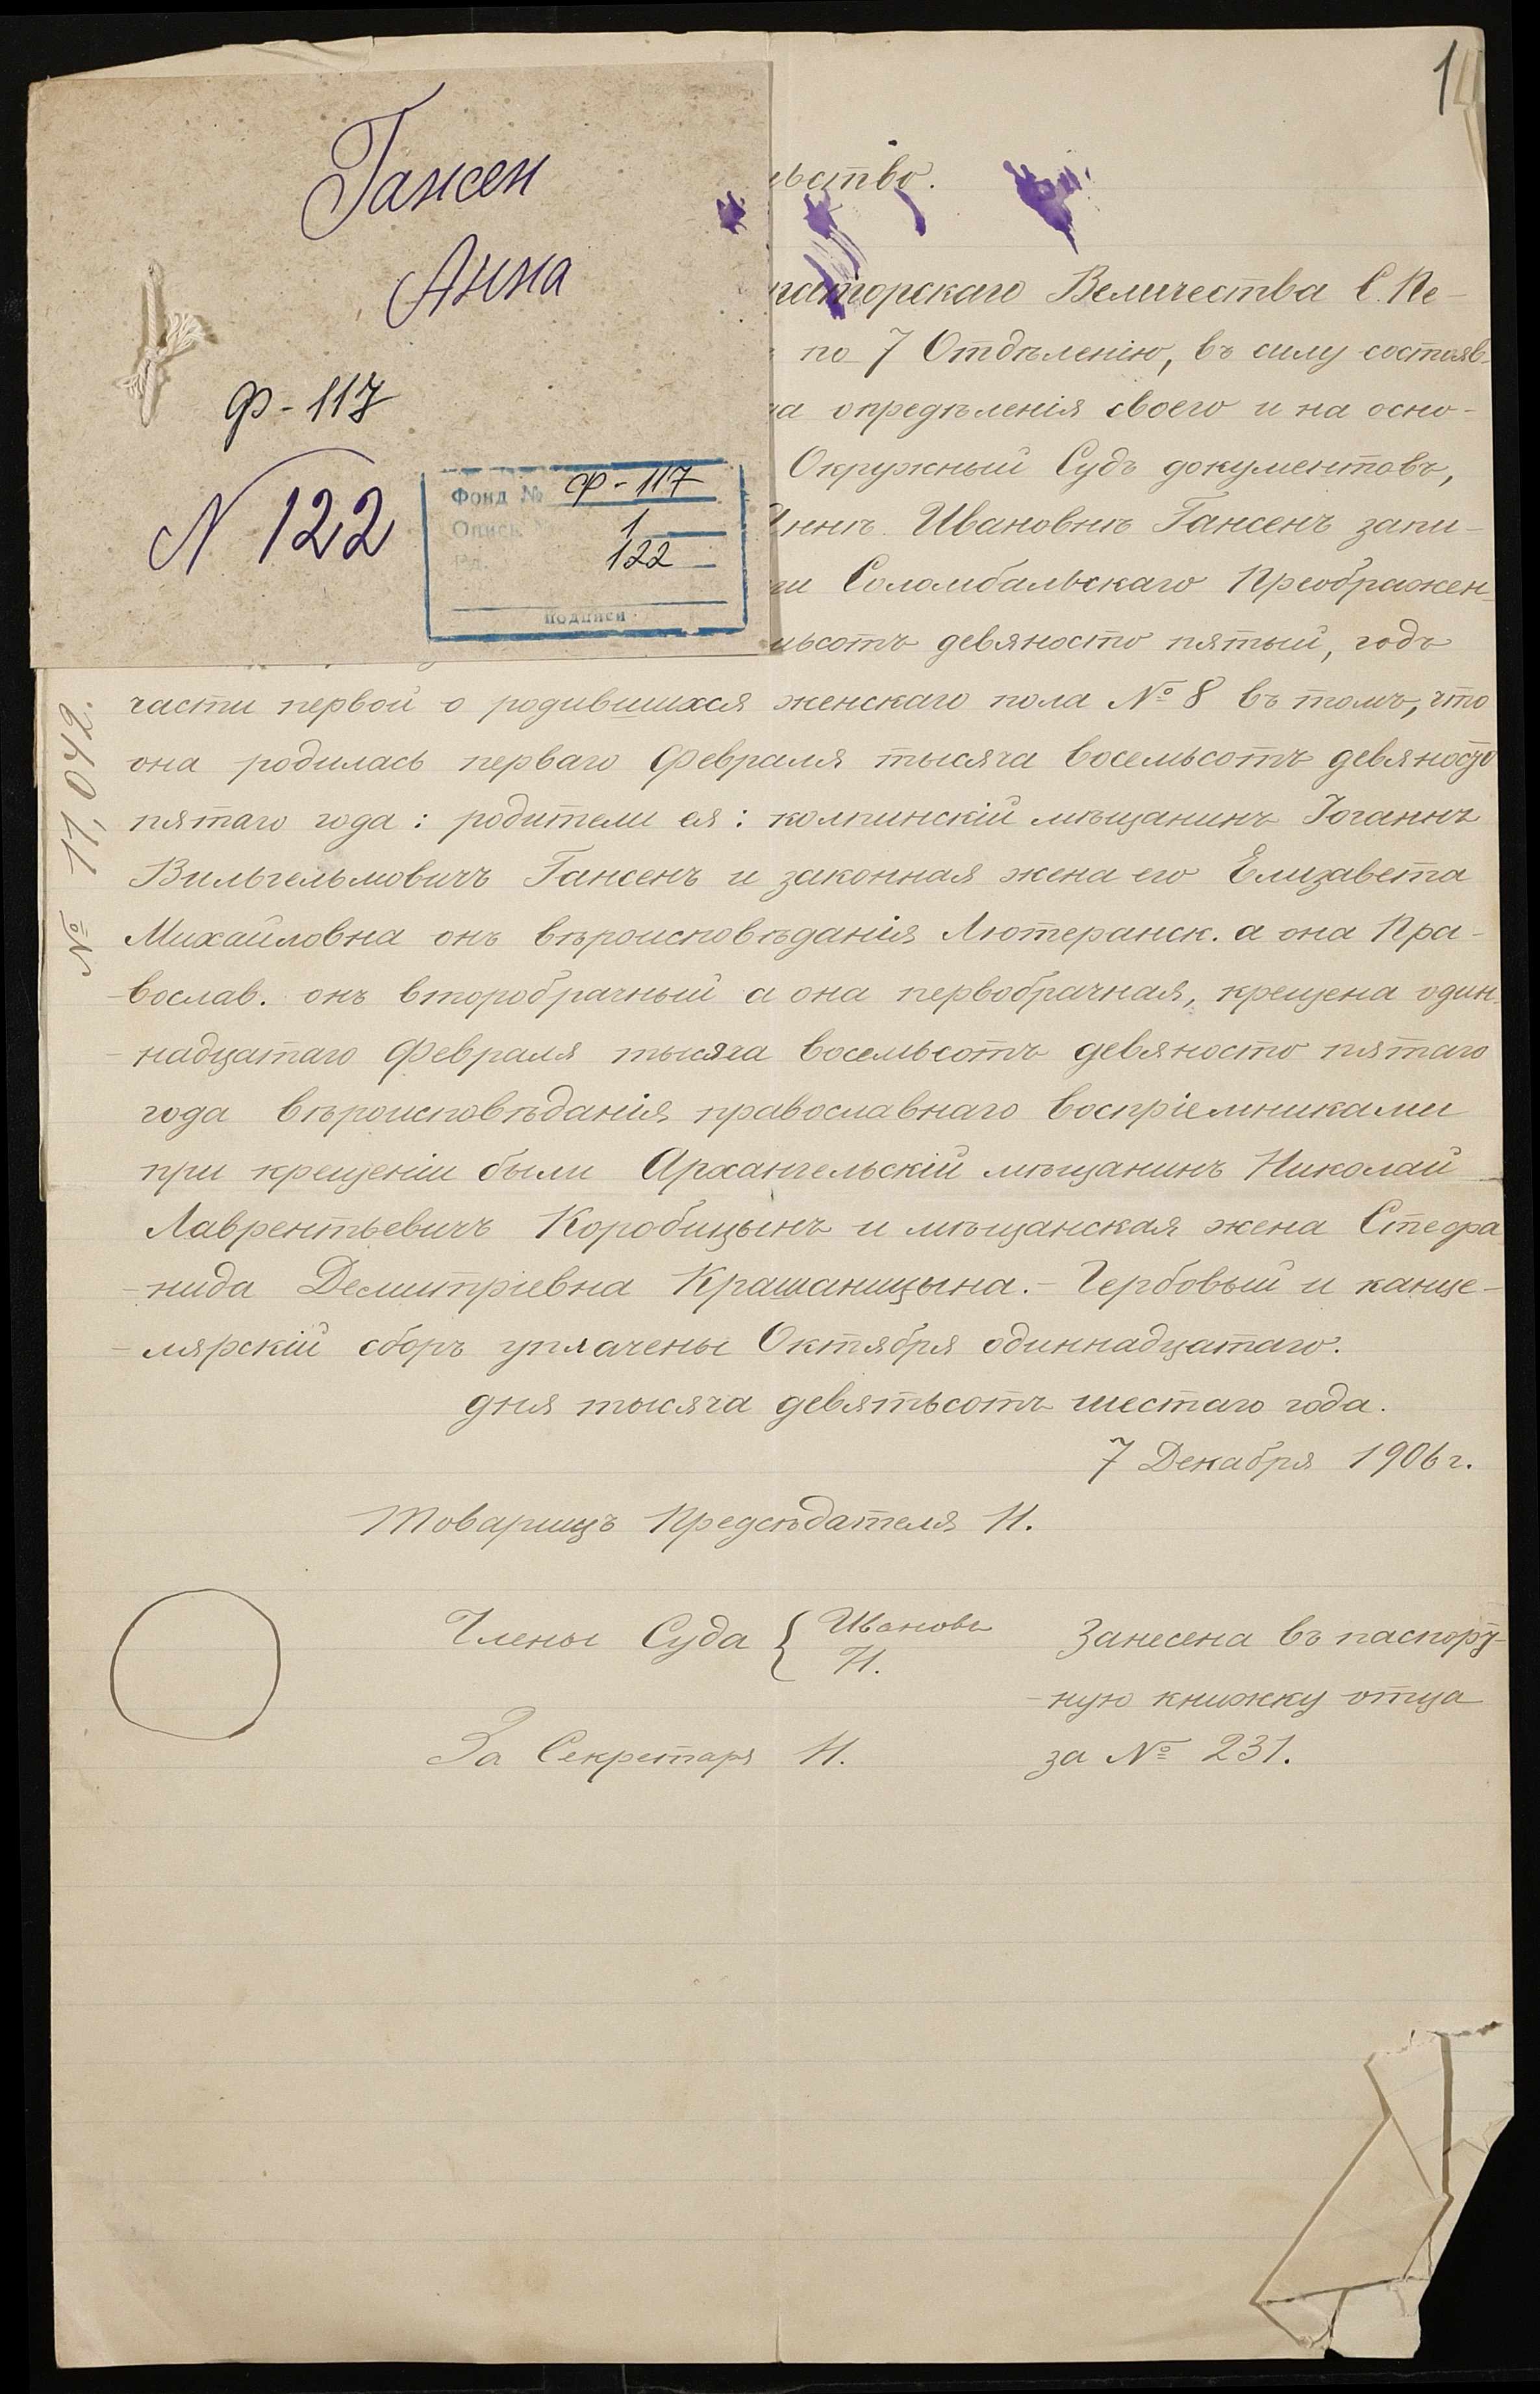 1
Гансен
Анна
Ф-117
N 122
Фонд № Ф-117
Опись 1
Ед. 122
подписи
ьство.
раторскаго Величества С. Пе-
по 7 Отдѣленію, въ силу состояв-
опредѣленія своего и на осно-
Окружный Судъ документовъ,
Аннѣ Ивановнѣ Гансенъ запи-
Соломбальскаго Преображен-
мьсотъ девяносто пятый, годъ
№ 11,042.
части первой о родившихся женскаго пола № 8 въ томъ, что
она родилась перваго Февраля тысяча восемьсотъ девяносто
пятаго года: родители ея: колпинскій мѣщанинъ Іоганнъ
Вильгельмовичъ Гансенъ и законная жена его Елизавета
Михайловна онъ вѣроисповѣданія Лютеранск. а она Пра-
-вослав. онъ второбрачный а она первобрачная, крещена один-
-надцатаго Февраля тысяча восемьсотъ девяносто пятаго
года вѣроисповѣданія православнаго воспріемниками
при крещеніи были Архангельскій мѣщанинъ Николай
Лаврентьевичъ Коробицынъ и мѣщанская жена Стефа
-нида Демитріевна Крашаницына.- Гербовый и канце-
-лярскій сборъ уплачены Октября одиннадцатаго.
дня тысяча девятьсотъ шестаго года.
7 Декабря 1906 г.
Товарищъ Предсѣдателя Н.
Члены Суда { Ивановъ
Н.
За Секретаря Н.
Занесена въ паспорт-
-ную книжку отца
за № 231.